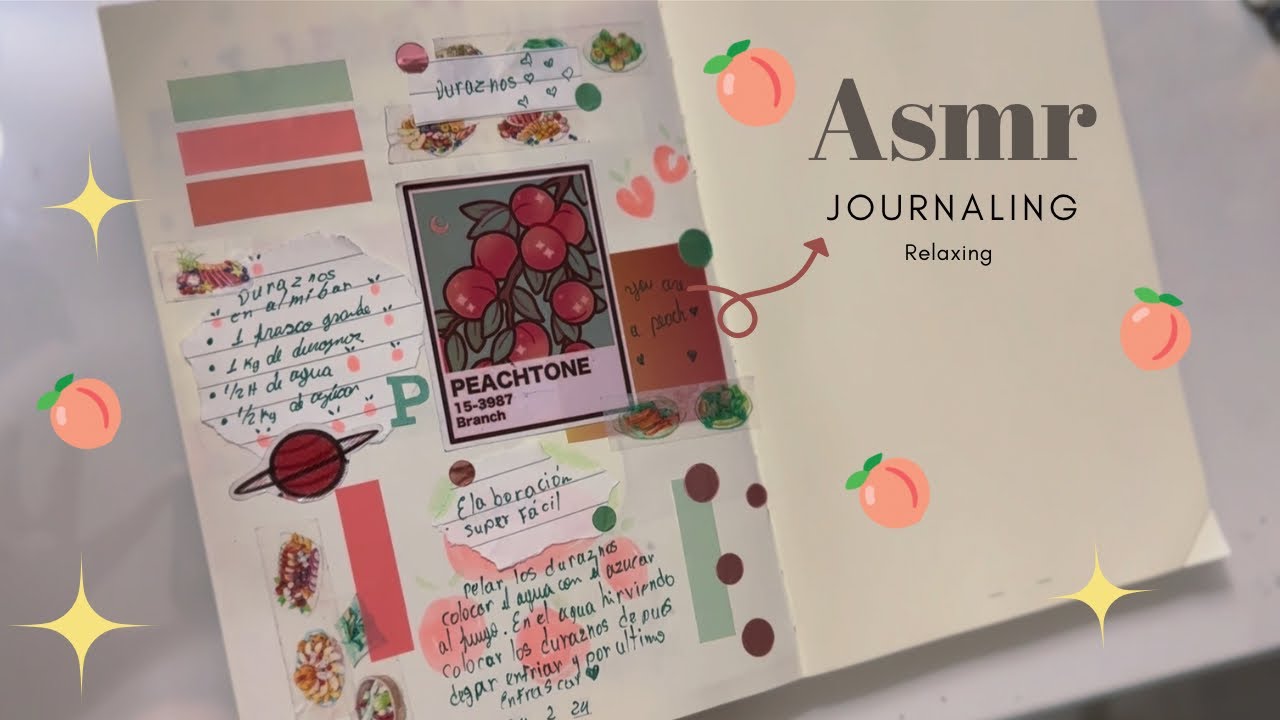 Duraznos
Asmr
JOURNALING
Relaxing
Duraznos
en almibar
• 1 frasco grande
• 1 Kg de duraznos
• 1/2 lt de agua
• 1/2 Kg de azúcar
P
PEACHTONE
15-3987
Branch
you are
a peach
Elaboración
super Fácil
pelar los duraznos
colocar el agua con el azucar
al fuego. En el agua hirviendo
colocar los duraznos despues
degar enfriar y por ultimo
enfrascar
2 24